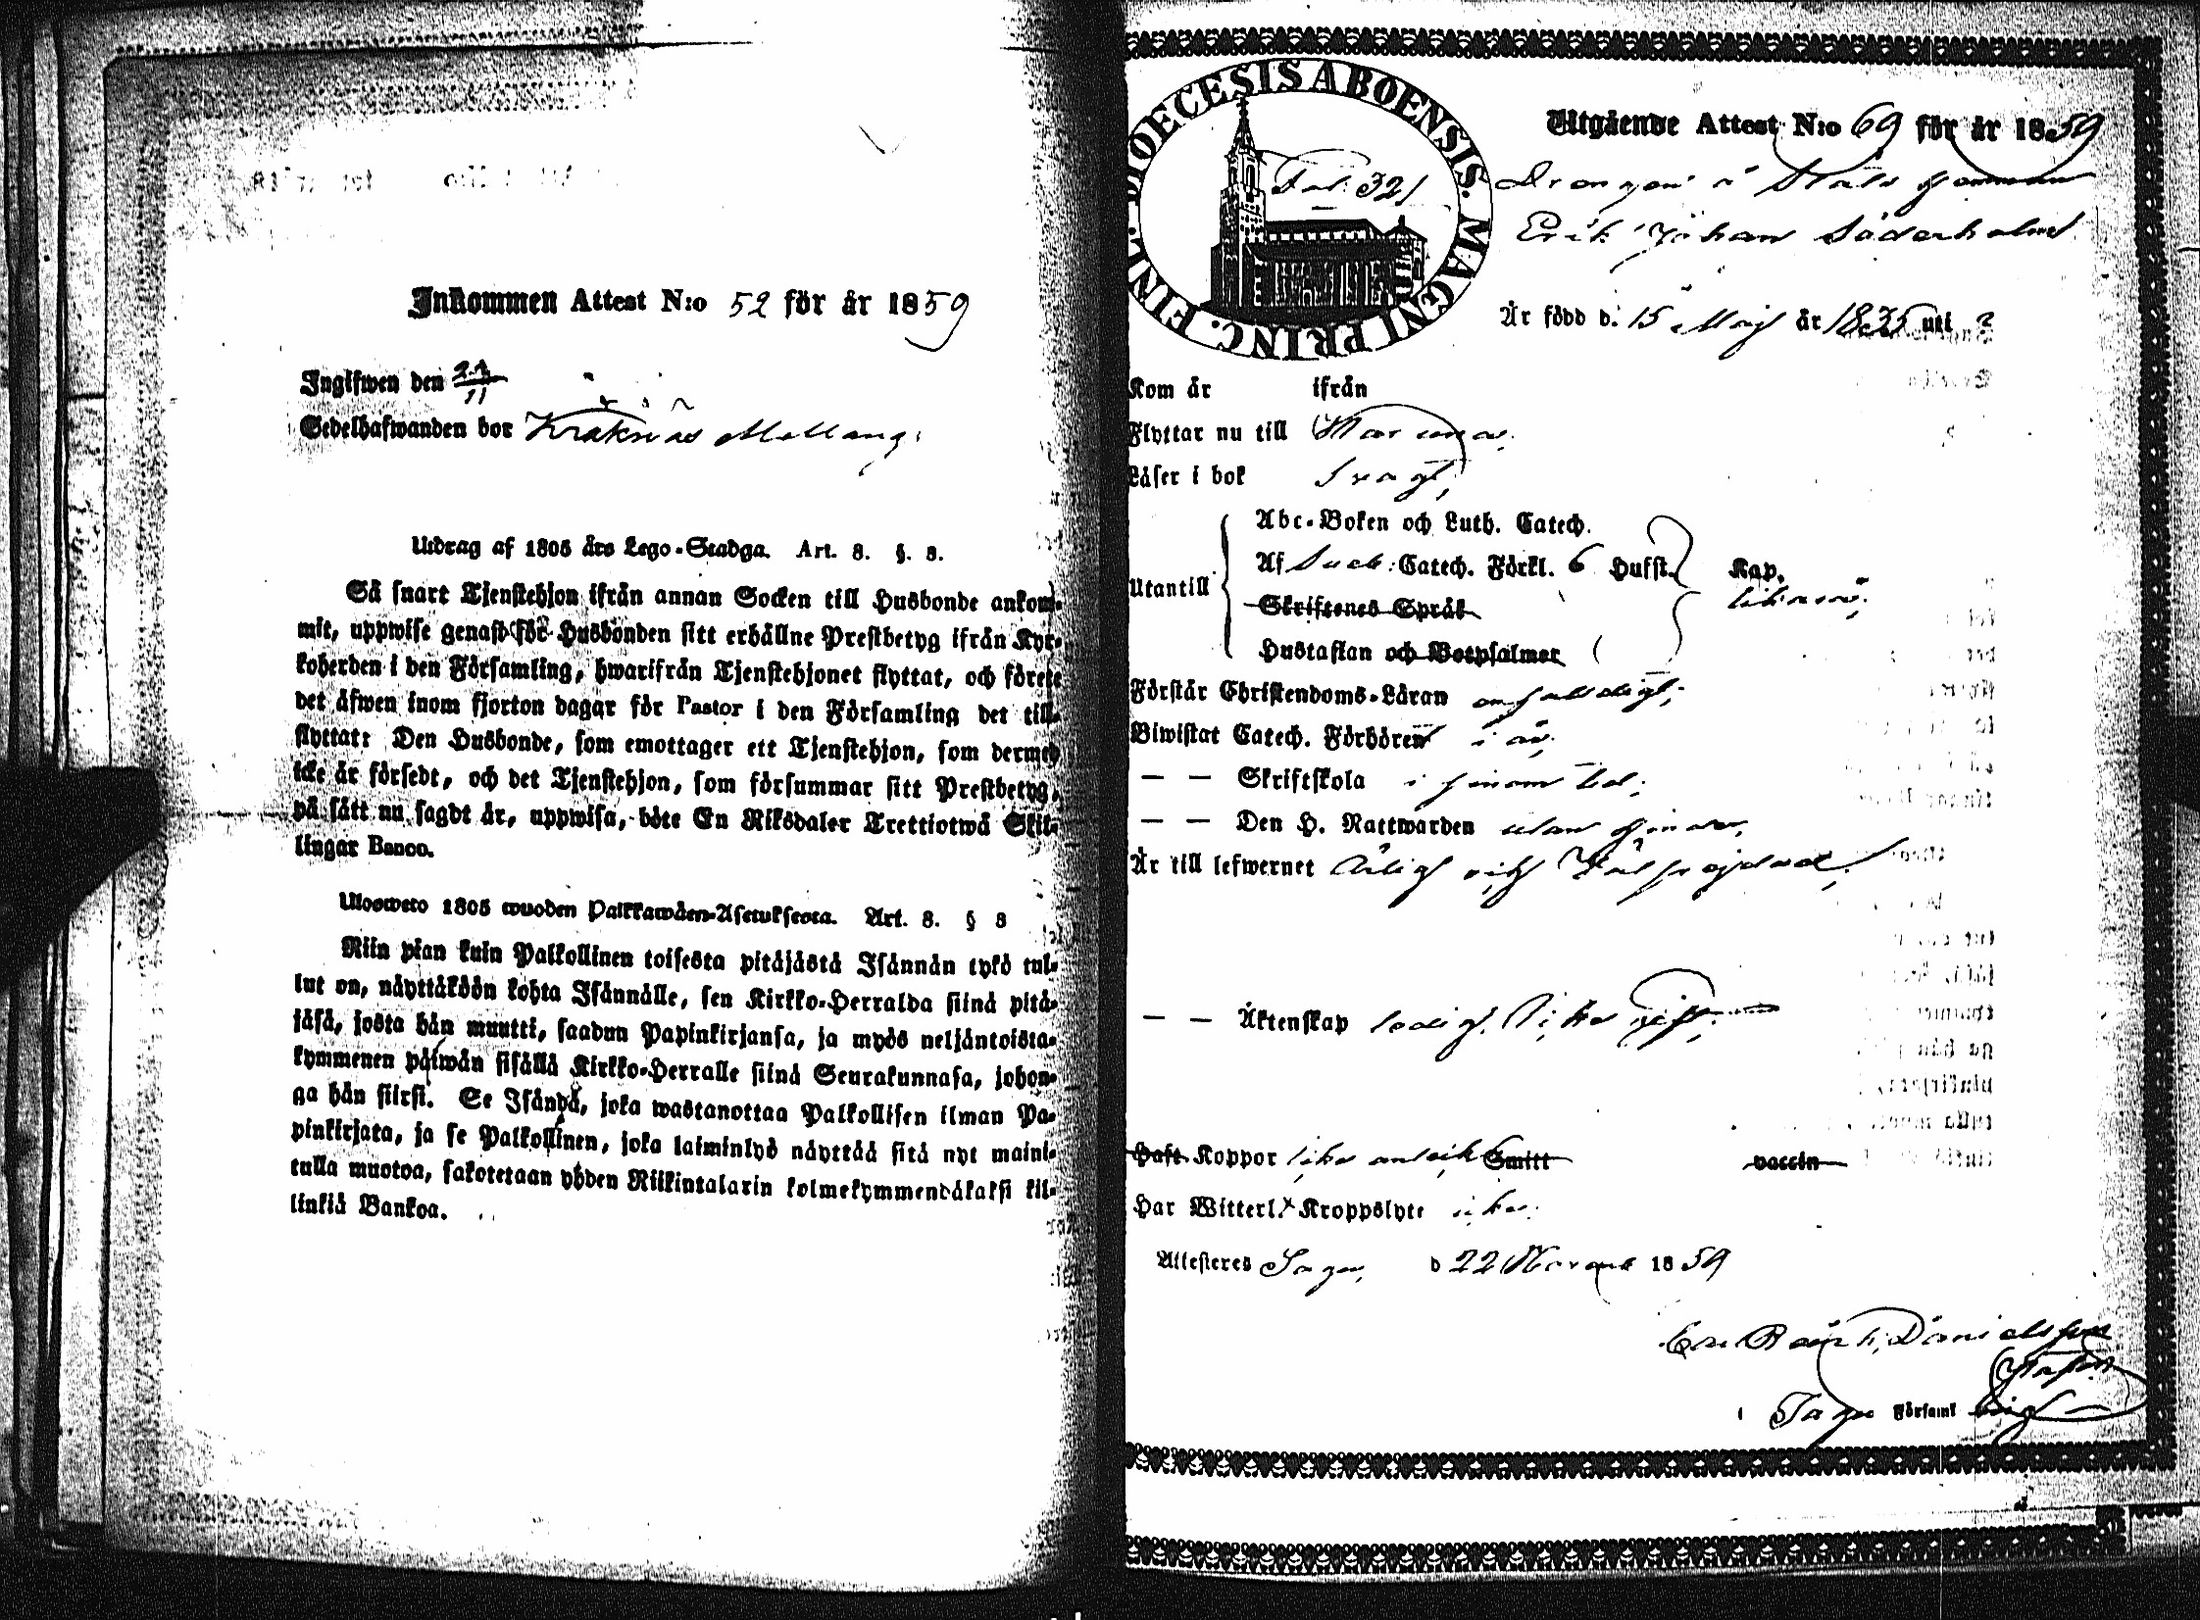 Inkommen Attest N:o 52 för år 1859
Ingifwen den 23/11
Sedelhafwanden bor Kräknäs Mellang:
Utdrag af 1805 års Lego-Stadga. Art. 8. §. 8.
Så snart Tjenstehjon ifrån annan Socken till Husbonde ankom-
mit, uppwise genast för Husbonden sitt erhållne Prestbetyg ifrån Kyr-
koherden i den Församling, hwarifrån Tjenstehjonet flyttat, och förete
det äfwen inom fjorton dagar för Pastor i den Församling det till-
flyttat: Den Husbonde, som emottager ett Tjenstehjon, som dermed
icke är försedt, och det Tjenstehjon, som försummar sitt Prestbetyg,
på sätt nu sagdt är, uppwisa, böte En Riksdaler Trettiotwå Skil-
lingar Banco.
Ulosweto 1805 wuoden Palkkawäen-Asetuksesta. Art. 8. § 8
Niin pian kuin Palkollinen toisesta pitäjästä Isännän tykö tul-
lut on, näyttäköön kohta Isännälle, sen Kirkko-Herralda siinä pitä-
jäsä, josta hän muutti, saadun Papinkirjansa, ja myös neljäntoista-
kymmenen päiwän sisällä Kirkko-Herralle siinä Seurakunnasa, johon-
ga hän siirsi. Se Isändä, joka wastanottaa Palkollisen ilman Pa-
pinkirjata, ja se Palkollinen, joka laiminlyö näyttää sitä nyt maini-
tulla muotoa, sakotetaan yhden Riikintalarin kolmekymmendäkaksi kil-
linkiä Bankoa.
DIOECESIS ABOENSIS. MAGNI PRINC. FINL.
Fol. 321
Utgående Attest N:o 69 för år 1859
Drengen å Ståls hemman
Erik Johan Söderholm
Är född d. 15 Maij år 1835 uti ?
Kom år ifrån
Flyttar nu till
Läser i bok svagt,
Utantill
Abc-Boken och Luth. Catech.
Af Sveb: Catech. Förkl. 6 Hufst. Kap.
Skriftenes Språk likaså;
Hustaflan och Botpsalmer
Förstår Christendoms-Läran enfaldigt;
Biwistat Catech. Förhören i år;
— — Skriftskola i sinom tid;
— — Den H. Nattwarden utan hinder,
Är till lefwernet ärlig och välfrejdad;
— — Äktenskap ledig. Icke gift;
Haft Koppor icke antecknadt Smitt vaccin
Har Witterl. Kroppslyte icke:
Attesteres Sagu, d 22 Novemb 1859
Danielsson
i Sagu Församl